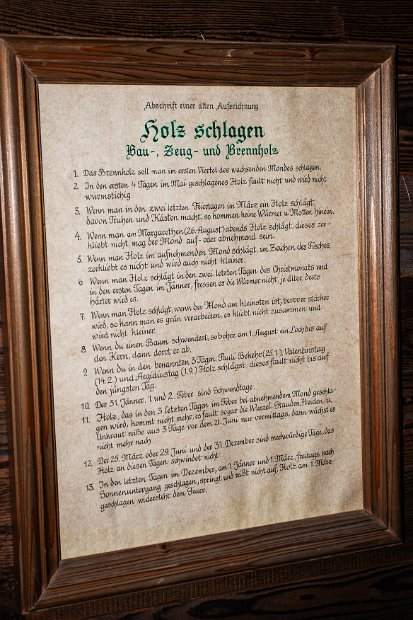 Abschrift einer alten Aufzeichnung
Holz schlagen
Bau-, Zeug- und Brennholz
1. Das Brennholz soll man im ersten Viertel des wachsenden Mondes schlagen.
2. In den ersten 4 Tagen im Mai geschlagenes Holz fault nicht und wird nicht
wurmstichig.
3. Wenn man in den zwei letzten Feiertagen im März ein Holz schlägt,
davon Truhen und Kästen macht, so kommen keine Würmer u. Motten hinein.
4. Wenn man am Margarethen (26. August) abends Holz schlägt, dieses zer-
kliebt nicht, mag der Mond auf- oder abnehmend sein.
5. Wenn man Holz im aufnehmenden Mond schlägt, im Zeichen des Fisches,
zerkliebt es nicht und wird auch nicht kleiner.
6. Wenn man Holz schlägt in den zwei letzten Tagen des Christmonats und
in den ersten Tagen im Jänner, fressen er die Würmer nicht, je älter, desto
härter wird es.
7. Wenn man Holz schlägt, wenn der Mond am kleinsten ist, bevor er stärker
wird, so kann man es grün verarbeiten, es kliebt nicht zusammen und
wird nicht kleiner.
8. Wenn du einen Baum schwendest, so bohre am 1. August ein Loch bis auf
den Kern, dann dorrt er ab.
9. Wenn du in den benannten 3 Tagen, Pauli Bekehr. (25.1.), Valentinstag
(14.2.) und Aegidiustag (1.9.) Holz schlägst, dieses fault nicht bis auf
den jüngsten Tag.
10. Der 31. Jänner, 1. und 2. Feber sind Schwendtage.
11. Holz, das in den 3 letzten Tagen im Feber bei abnehmendem Mond geschla-
gen wird, kommt nicht mehr, es fault sogar die Wurzel. Stauden, Heiden u.
Unkraut reiße aus 3 Tage vor dem 21. Juni nur vormittags, dann wächst es
nicht mehr nach.
12. Der 25. März oder 29. Juni und der 31. Dezember sind merkwürdige Tage, das
Holz an diesen Tagen schwindet nicht.
13. In den letzten Tagen im Dezember, am 1. Jänner und 1. März, freitags nach
Sonnenuntergang geschlagen, springt und reißt nicht auf. Holz am 1. März
geschlagen widersteht dem Feuer.